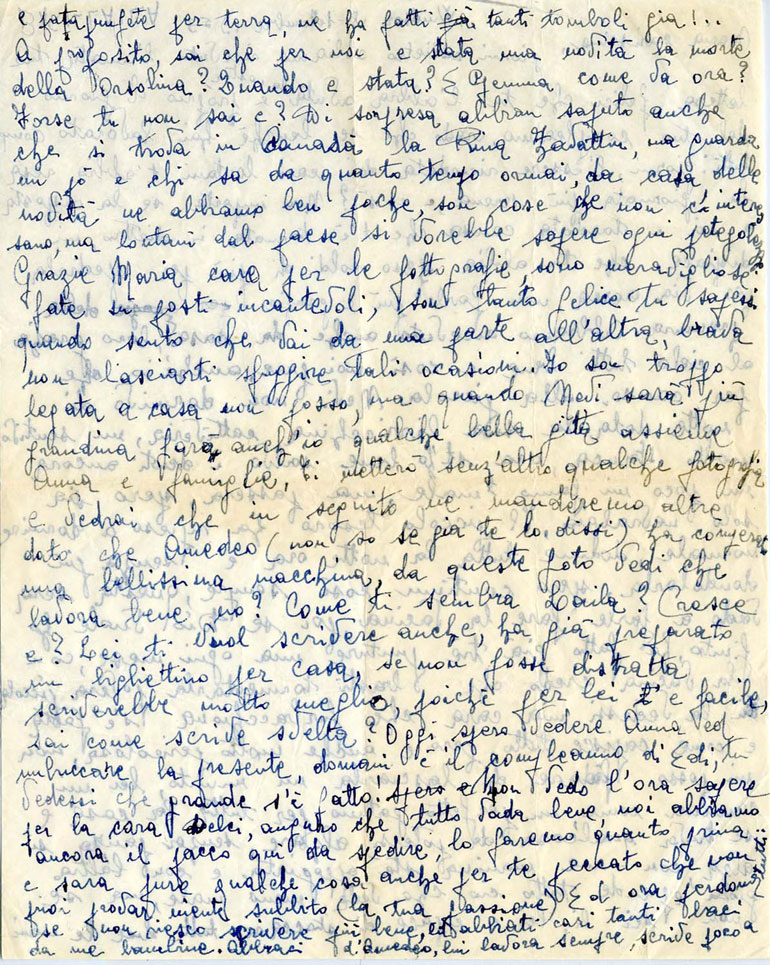 e fatamgete per terra, ne ha fatti già tanti tomboli già!..
A proposito, sai che per noi e stata una novità la morte
della Orsolina? Quando e stata? E Gemma come va ora?
Forse tu non sai e? Di sorpresa abbian saputo anche
che si trova in Canadà la Rina Zavattin, ma guarda
un pò e chi sa da quanto tempo ormai, da casa delle
novità ne abbiamo ben poche, son cose che non c'interes
sano, ma lontani dal paese si vorebbe sapere ogni petegolezzo
Grazie Maria cara per le fottografie sono meravigliose
fate in posti incantevoli, son tanto felice tu sapessi
quando sento che vai da una parte all'altra, brava
non lasciarti sfuggire tali ocasioni. Io son troppo
legata a casa non posso, ma quando Nedi sarà più
grandina farò anch'io qualche bella gita assieme
Anna e famiglie, ti metterò senz'altro qualche fotografia
e vedrai che in seguito ne manderemo altre
dato che Amedeo (non so se già te lo dissi) ha comperato
una bellissima macchina, da queste foto vedi che
lavora bene no? Come ti sembra Laila? Cresce
e? Lei ti vuol scrivere anche, ha già preparato
un bigliettino per casa, se non fosse distratta
scriverebbe molto meglio, poichè per lei e facile,
sai come scrive svelta? Oggi spero vedere Anna ed
imbuccare la presente, domani è il compleanno di Edi, tu
vedessi che grande s'è fatto! Spero e non vedo l'ora sapere
per la cara Delci, auguro che tutto vada bene, noi abbiamo
ancora il pacco qui da spedire, lo faremo quanto prima
e sara pure qualche cosa anche per te peccato che non
puoi provar niente subbito (la tua passione) Ed ora perdona
se non riesco scrivere più bene, ed abbiati cari tanti baci
da me bambine. Abbraci d'Amedeo, lui lavora sempre, scrive poco a
tutti: